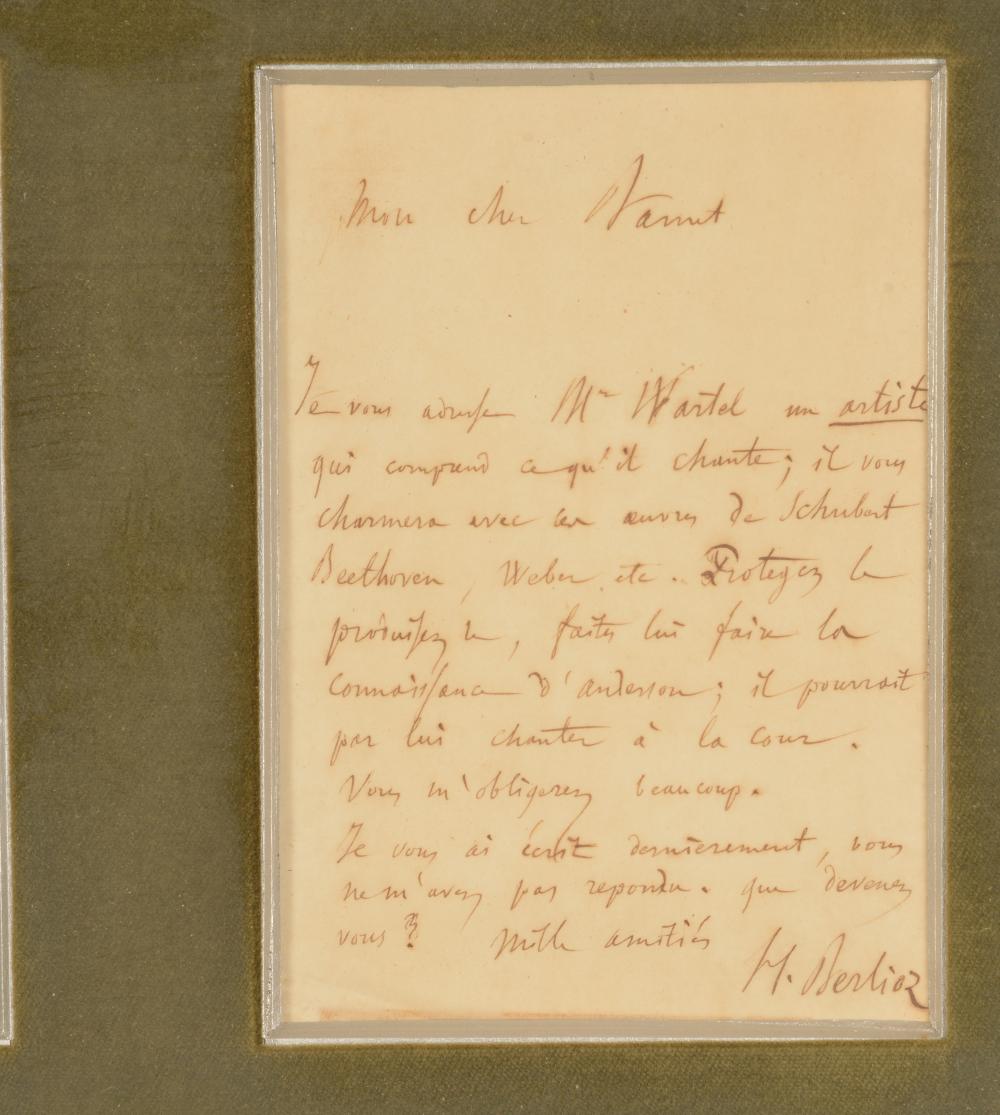 Mon cher
Je vous adresse Mr Wartel un artiste
qui comprend ce qu'il chante; il vous
charmera avec les œuvres de Schubert
Beethoven, Weber etc. Protegez le
produisez le, faites lui faire la
connaissance d'anderson; il pourrait
par lui chanter à la cour.
Vous m'obligerez beaucoup.
Je vous ai écrit dernierement, vous
ne m'avez pas repondu. que devenez
vous?   Mille amitiés
H. Berlioz